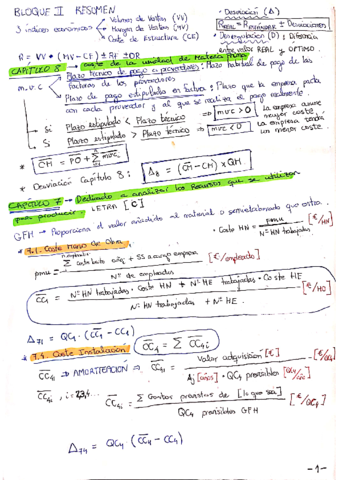 BLOQUE II RESUMEN
3 índices económicos
Volumen de Ventas (VV)
Margen de Ventas (MV)
Coste de Estructura (CE)
Desviación (Δ)
REAL = PRELIMINAR ± Desviaciones
Desviación (D) : Diferencia
entre valor REAL y OPTIMO.
R = VV · (MV - CF) ± RF ± OP
CAPITULO 8 → coste de la unidad de Materia Prima
m.v.c
Plazo técnico de pago a proveedores: Plazo habitual de pago de las
facturas de los proveedores
Plazo de pago estipulado en factura: Plazo que la empresa pacta
con cada proveedor y al que se realiza el pago realmente.
Si Plazo estipulado < Plazo técnico → mvc > 0 La empresa asume mayor coste.
Si Plazo estipulado > Plazo técnico → mvc < 0 La empresa tendrá un menor coste.
* CM = PO + Σ mvc
* Desviación Capítulo 8: Δ8 = (CM - CM) × QM
CAPITULO 7 → Dedicado a analizar los Recursos que se utilizan
para producir. LETRA [C]
GFH → Proporciona el valor añadido al material o semielaborado que entra.
* 7.1. Coste Mano de Obra
· Coste HN = pmu / Nº HN trabajadas [€/HN]
pmu = Σ cada empleado + SS a cargo empresa / Nº de empleados [€/empleado]
CC1 = Nº HN trabajadas · Coste HN + Nº HE trabajadas · Coste HE / Nº HN trabajadas + Nº HE [€/HO]
Δ71 = QC1 · (CC1 - CC1)
* 7.4. Coste Instalación
CC4 = Σ CC4i
CC4i → AMORTIZACION → CC4i = Valor adquisición [€] / Aj [años] · QC4 previsibles [QC4/año] = [€/QC4]
CC4i, i = 2,3,4... CC4i = Σ Gastos previstos de [lo que sea] / QC4 previsibles GFH [€/QC4]
Δ74 = QC4 · (CC4 - CC4)
-1-